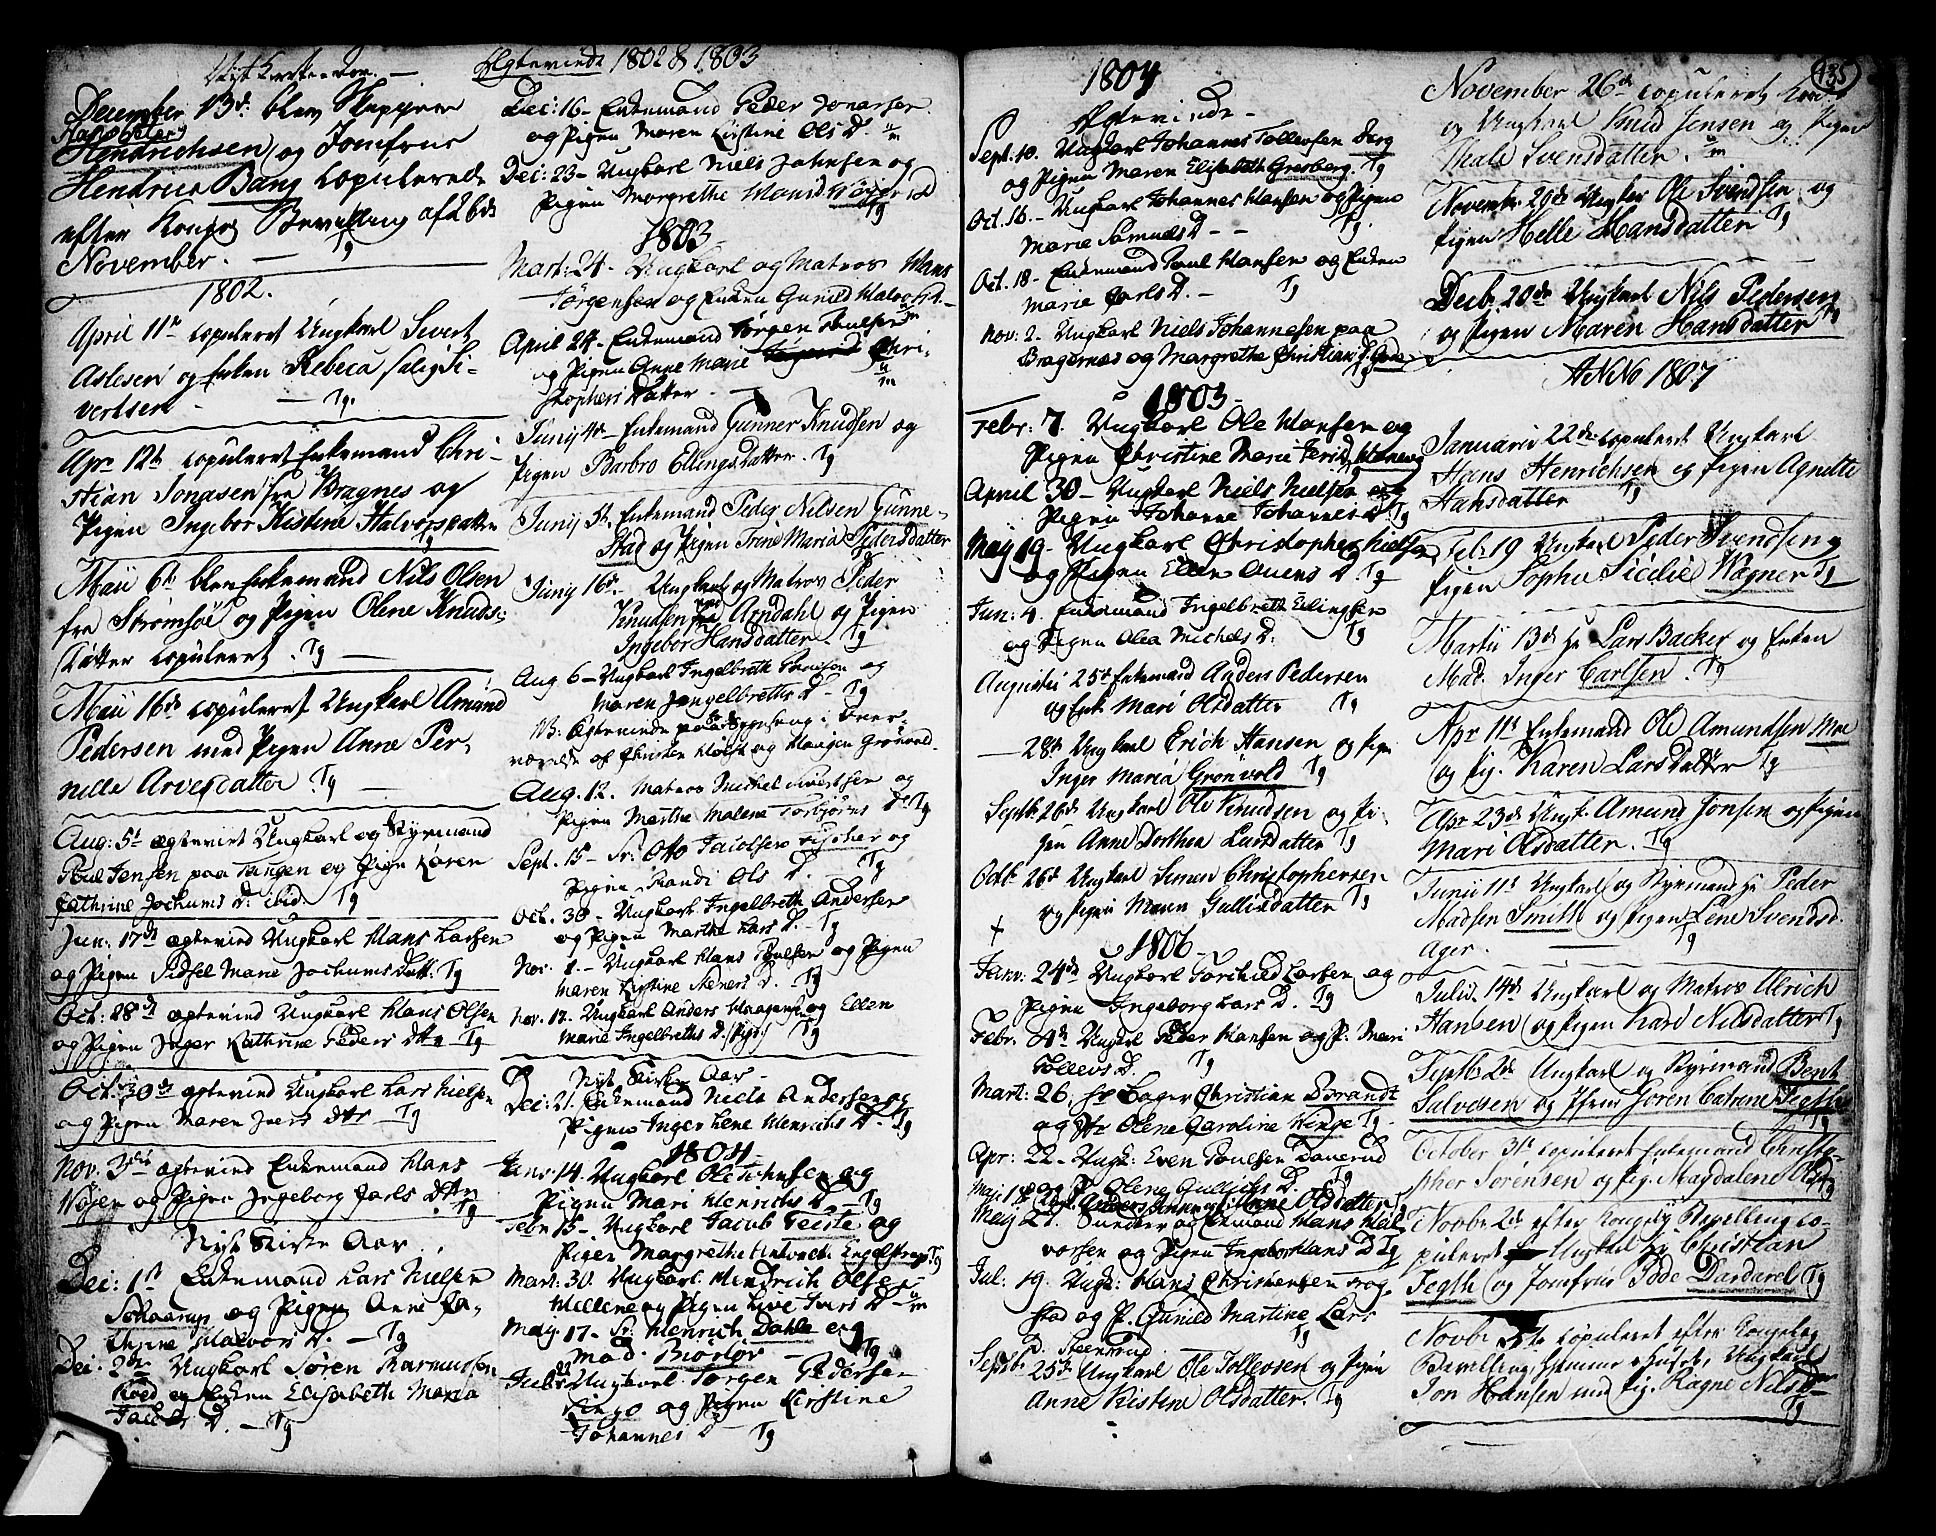 Nyt Kirke Aar. —
December 13de blev Skipper
Hans Peter
Hendrichsen og Jomfrue
Hendrica Bang copulerede
efter Konges Bevilling af 26de
November. — Tg
1802.
April 11te copuleret Ungkarl Sivert
Aslesen og Enken Rebeca salig Si-
vertsen — Tg.
Apr 12te copuleret Enkemand Chri-
stian Jonasen fra Bragnes og
Pigen Ingebor Kistine Halvorsdatter
Tg
Maii 6te blev Enkemand Nils Olsen
fra Strømsöe og Pigen Olene Knuds-
Datter copuleret. Tg —
Maii 16de copuleret Ungkarl Amund
Pedersen med Pigen Anne Per-
nille Arvesdatter Tg —
Aug: 5te ægtevirt Ungkarl og Styrmand
Poul Jensen paa Tangen og Pigen Karen
Cathrine Jochums D: ibid. Tg
Jun: 17de ægtevied Ungkarl Hans Larsen
og Pigen Sidsel Marie Jochums Datt. Tg
Oct: 28de ægtevied Ungkarl Hans Olsen
og Pigen Inger Kathrine Peders Dtr Tg
Oct: 30de ægtevied Ungkarl Lars Nielsen
og Pigen Maren Ivers dtr Tg
Nov. 3die ægtevied Enkemand Hans
og Pigen Ingeborg Carls Dtr
Tg
Nyt Kirke Aar.
Dec: 1ste Enkemand Lars Nielsen
og Pigen Anne Ca-
thrine Halvors D. — Tg
Dec: 2den Ungkarl Sören Rasmussen
og Enken Elisabeth Maria
Jacobs D. — Tg
Ægteviede 1802 & 1803
Dec: 16 - Enkemand Peder Jonassen
og Pigen Maren Kirstine Ols D.
Dec: 23 - Ungkarl Niels Johnsen og
Pigen Margrethe D
Tg
1803
Mart: 24 - Ungkarl og Matros Hans
Jörgensen og Enken Gunild Halvors D. -
April 24 - Enkemand Jörgen Poulsen
og Pigen Anne Marie Chri-
stophers Datter —
Junij 4de - Enkemand Gunner Knudsen og
Pigen Barbro Ellings Datter. Tg
Junij 5te Enkemand Peder Nilsen Gunne-
stad og Pigen Trine Maria Pedersdatter
Junij 16de - Ungkarl og Matros Peder
Knudsen fra Arndahl og Pigen
Ingebor Hansdatter - Tg
Aug 6 - Ungkarl Ingelbreth og
Maren Ingelbreths D - Tg
NB. Ægteviede paa i Over-
værelse af Christen Horst og Haagen Grönvold.
Aug. 12. Matros Michel Sivertsen og
Pigen Marthe Malene Torbjörns D. Tg
Sept. 15 - Sr. Otto Jacobsen Fischer og
Pigen Randi Ols D. — Tg
Oct. 30 - Ungkarl Ingelbreth Andersen
og Pigen Marthe Lars D. - Tg
Nov. 1. - Ungkarl Hans Poulsen og Pigen
Maren Kirstine D. Tg
Nov. 17. Ungkarl Anders Haagensen og Ellen
Marie Ingelbreths D. (Pige) Tg
Nyt Kirke Aar -
Dec: 21. Enkemand Niels Andersen og
Pigen Inger Lene Henrichs D. Tg
1804.
Janv: 14. Ungkarl Ole Johnsen og
Pigen Mari Henrichs D Tg
Febr: 15 - Ungkarl Jacob Teiste og
Pigen Margrethe Engelstrup Tg
Mart: 30. Ungkarl Hendrich Olsen
og Pigen Live Ivers D -
May. 17 - Sr. Henrich Dahl og
Mad. Biörlöv — Tg
Ungkarl Jörgen Pedersen
Ringo og Pigen Kirstine
Johannes D - Tg
1804
Ægteviede -
Sept. 10. Ungkarl Johannes Tollevsen Berg
og Pigen Maren Elisabeth Grosberg. Tg
Oct. 16. - Ungkarl Johannes Hansen og Pigen
Marie Samuels D - - Tg.
Oct. 18 - Enkemand Poul Hansen og Enken
Marie Carls D. - Tg
Nov: 2. Ungkarl Niels Johannesen paa
Bragernes og Margrethe Christian D.
Tg
1803 -
Febr: 7. Ungkarl Ole Hansen og
Pigen Christine Marie
April 30 - Ungkarl Niels Nielsen og
Pigen Johanne Johannes D. Tg
May 19 - Ungkarl Christopher Nielsen
og Pigen Ellen Ovens D. Tg
Jun: 4. Enkemand Ingelbreth Ellingsen
og Pigen Olea Michels D. Tg
Augustii 25te Enkemand Anders Pedersen
og Enk Mari Olsdatter Tg
— 28de Ungkarl Erich Hansen og Pigen
Inger Maria Grönvold Tg
Septb: 26de Ungkarl Ole Knudsen og Pi-
gen Anne Dorthea Larsdatter Tg
Octb: 26de Ungkarl Simen Christophersen
og Pigen Maren Gulliksdatter Tg
+
1806 -
Janv: 24de Ungkarl Torchild Larsen og
Pigen Ingeborg Lars D. Tg
Febr. 4de Ungkrl Peder Hansen og P: Mari
Tollevs D. Tg
Mart: 26. Hr Bager Christian Brandt
og Jfr Olene Caroline Winge Tg.
Apr: 22 - Ungk: Even Poulsen
og P. Olene Gulliks D. Tg
Maji 18. Anne Olsdatter Tg
Maij 27. og Enkemand Hans Hal-
vorsen og Pigen Ingebor Hans D Tg
Jul: 19. Ungk: Hans Christensen Frog-
stad og P. Gunild Martine Lars
D. Steensrud Tg
Septb: 25te Ungkarl Ole Tollevsen og Pigen
Anne Kisten Olsdatter. Tg
135
November 26de copuleret
og Ungkarl Knud Jensen og Pigen
Thale Svensdatter.
Novembr: 29de Ungkar Ole Svendsen og
Pigen Helle Hansdatter Tg
Decb: 20de Ungkarl Nils Pedersen
og Pigen Maren Hansdatter Tg
ANNO 1807
Januarii 22de copuleret Ungkarl
Hans Henrichsen og Pigen Agnette
Hansdatter Tg
Feb: 19 Ungkarl Peder Svendsen og
Pigen Sophie Sicilie Wagner Tg
Martii 13de Hr Lars Backer og Enken
Mad. Inger Carlsen. Tg
Apr 11te Enkemand Ole Amundsen Moe
og Pig. Karen Larsdatter Tg
Apr 23de Ungk. Amund Jonsen og Pigen
Mari Olsdatter. Tg
Junii 11te Ungkarl og Styrmand Hr Peder
Madsen Smith og Pigen Lene Svendsd.
Ager. — Tg
Julii. 14de Ungkarl og Matros Ulrich
Hansen og Pigen Kari Nilsdatter Tg
Septbr 2de Ungkarl og Styrmand Bent
Salvesen og Pigen Joren Catrine
Tg
October 31te copuleret Enkemand Christo-
pher Sörensen og Pig. Magdalene Olsd
Tg
Novbr 2de efter Kongelig Bevilling co-
puleret Ungkarl Hr Christian
Fegth og Jomfrue Dardarel Tg
Novbr copuleret efter Kongelig
Bevilling hiemme i Huset, Ungkarl
Jon Hansen med Pig. Ragne Nils-
Tg